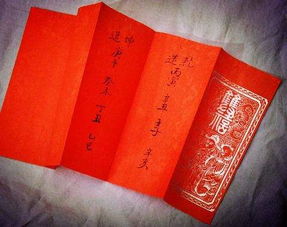 乾
造 丙寅 辛丑 壬子 辛亥
坤
造 庚午 癸未 丁丑 乙巳